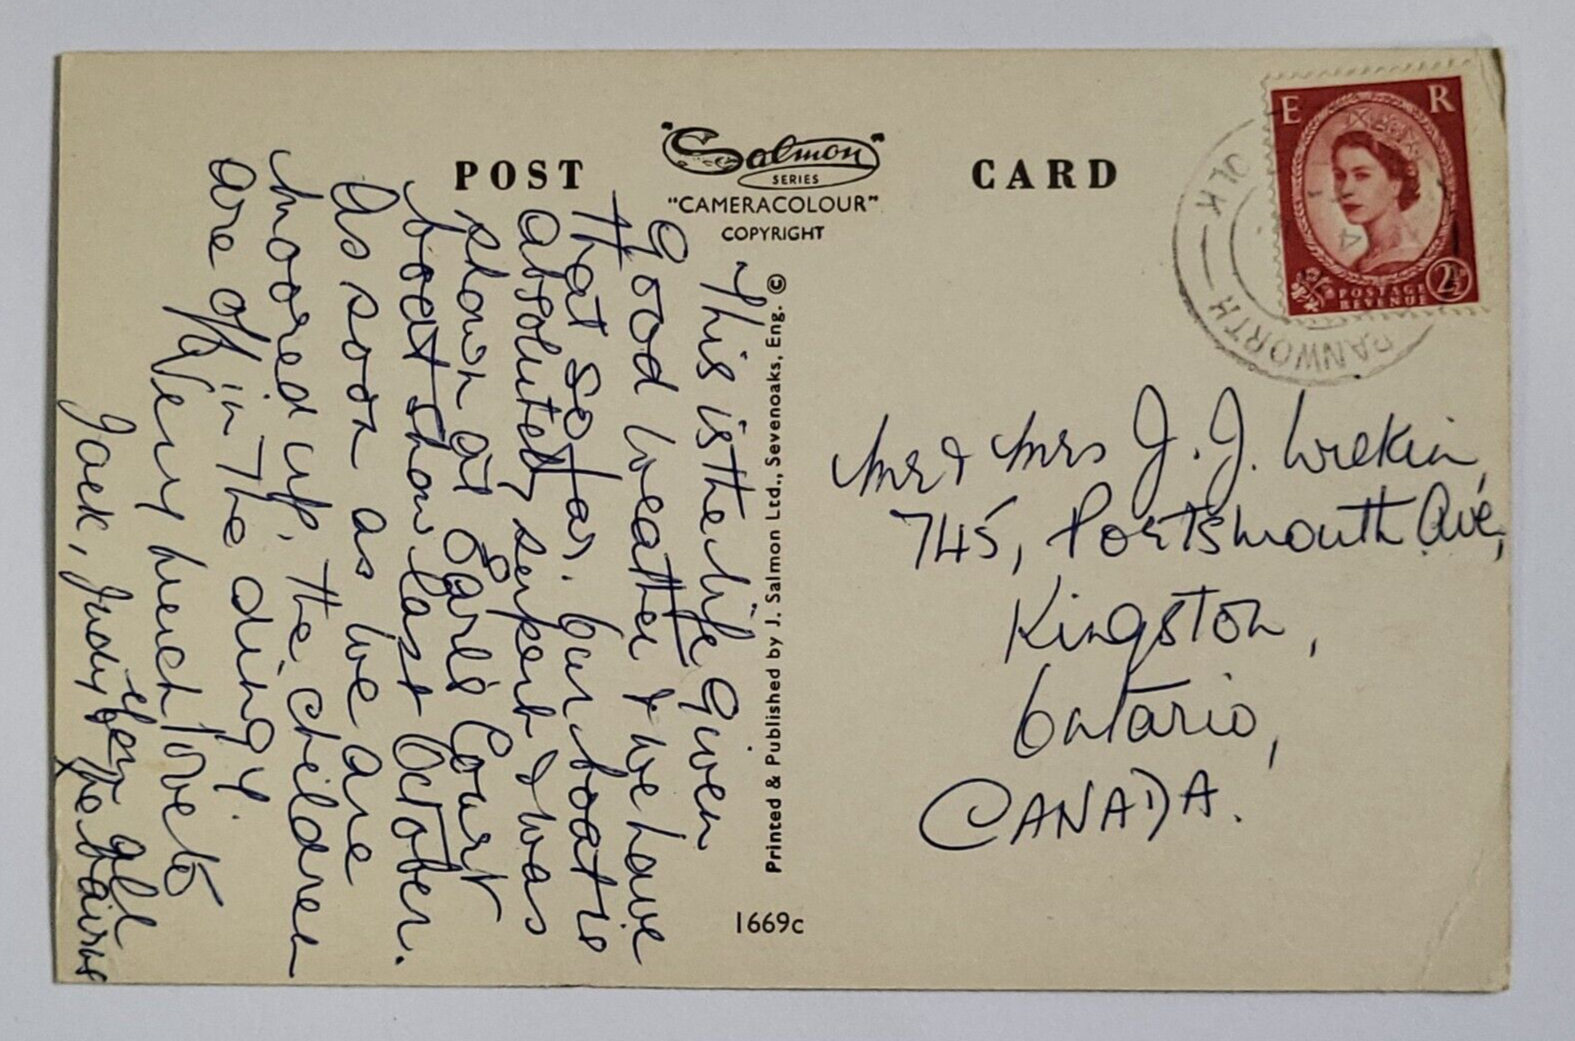 POST CARD
"Salmon"
SERIES
"CAMERACOLOUR"
COPYRIGHT
E R
POSTAGE
REVENUE
2½
RANWORTH — OLK —
This is the life given
good weather & we have
that so far. Our boat is
absolutely superb & was
shown at Earls Court
boat show last October.
As soon as we are
moored up, the children
are off in the dingy.
Very much love to
you all
Jack, Judy & the bairns
Printed & Published by J. Salmon Ltd., Sevenoaks, Eng. ©
1669c
Mr & Mrs J. J. Wrekin,
745, Portsmouth Ave,
Kingston,
Ontario,
CANADA.